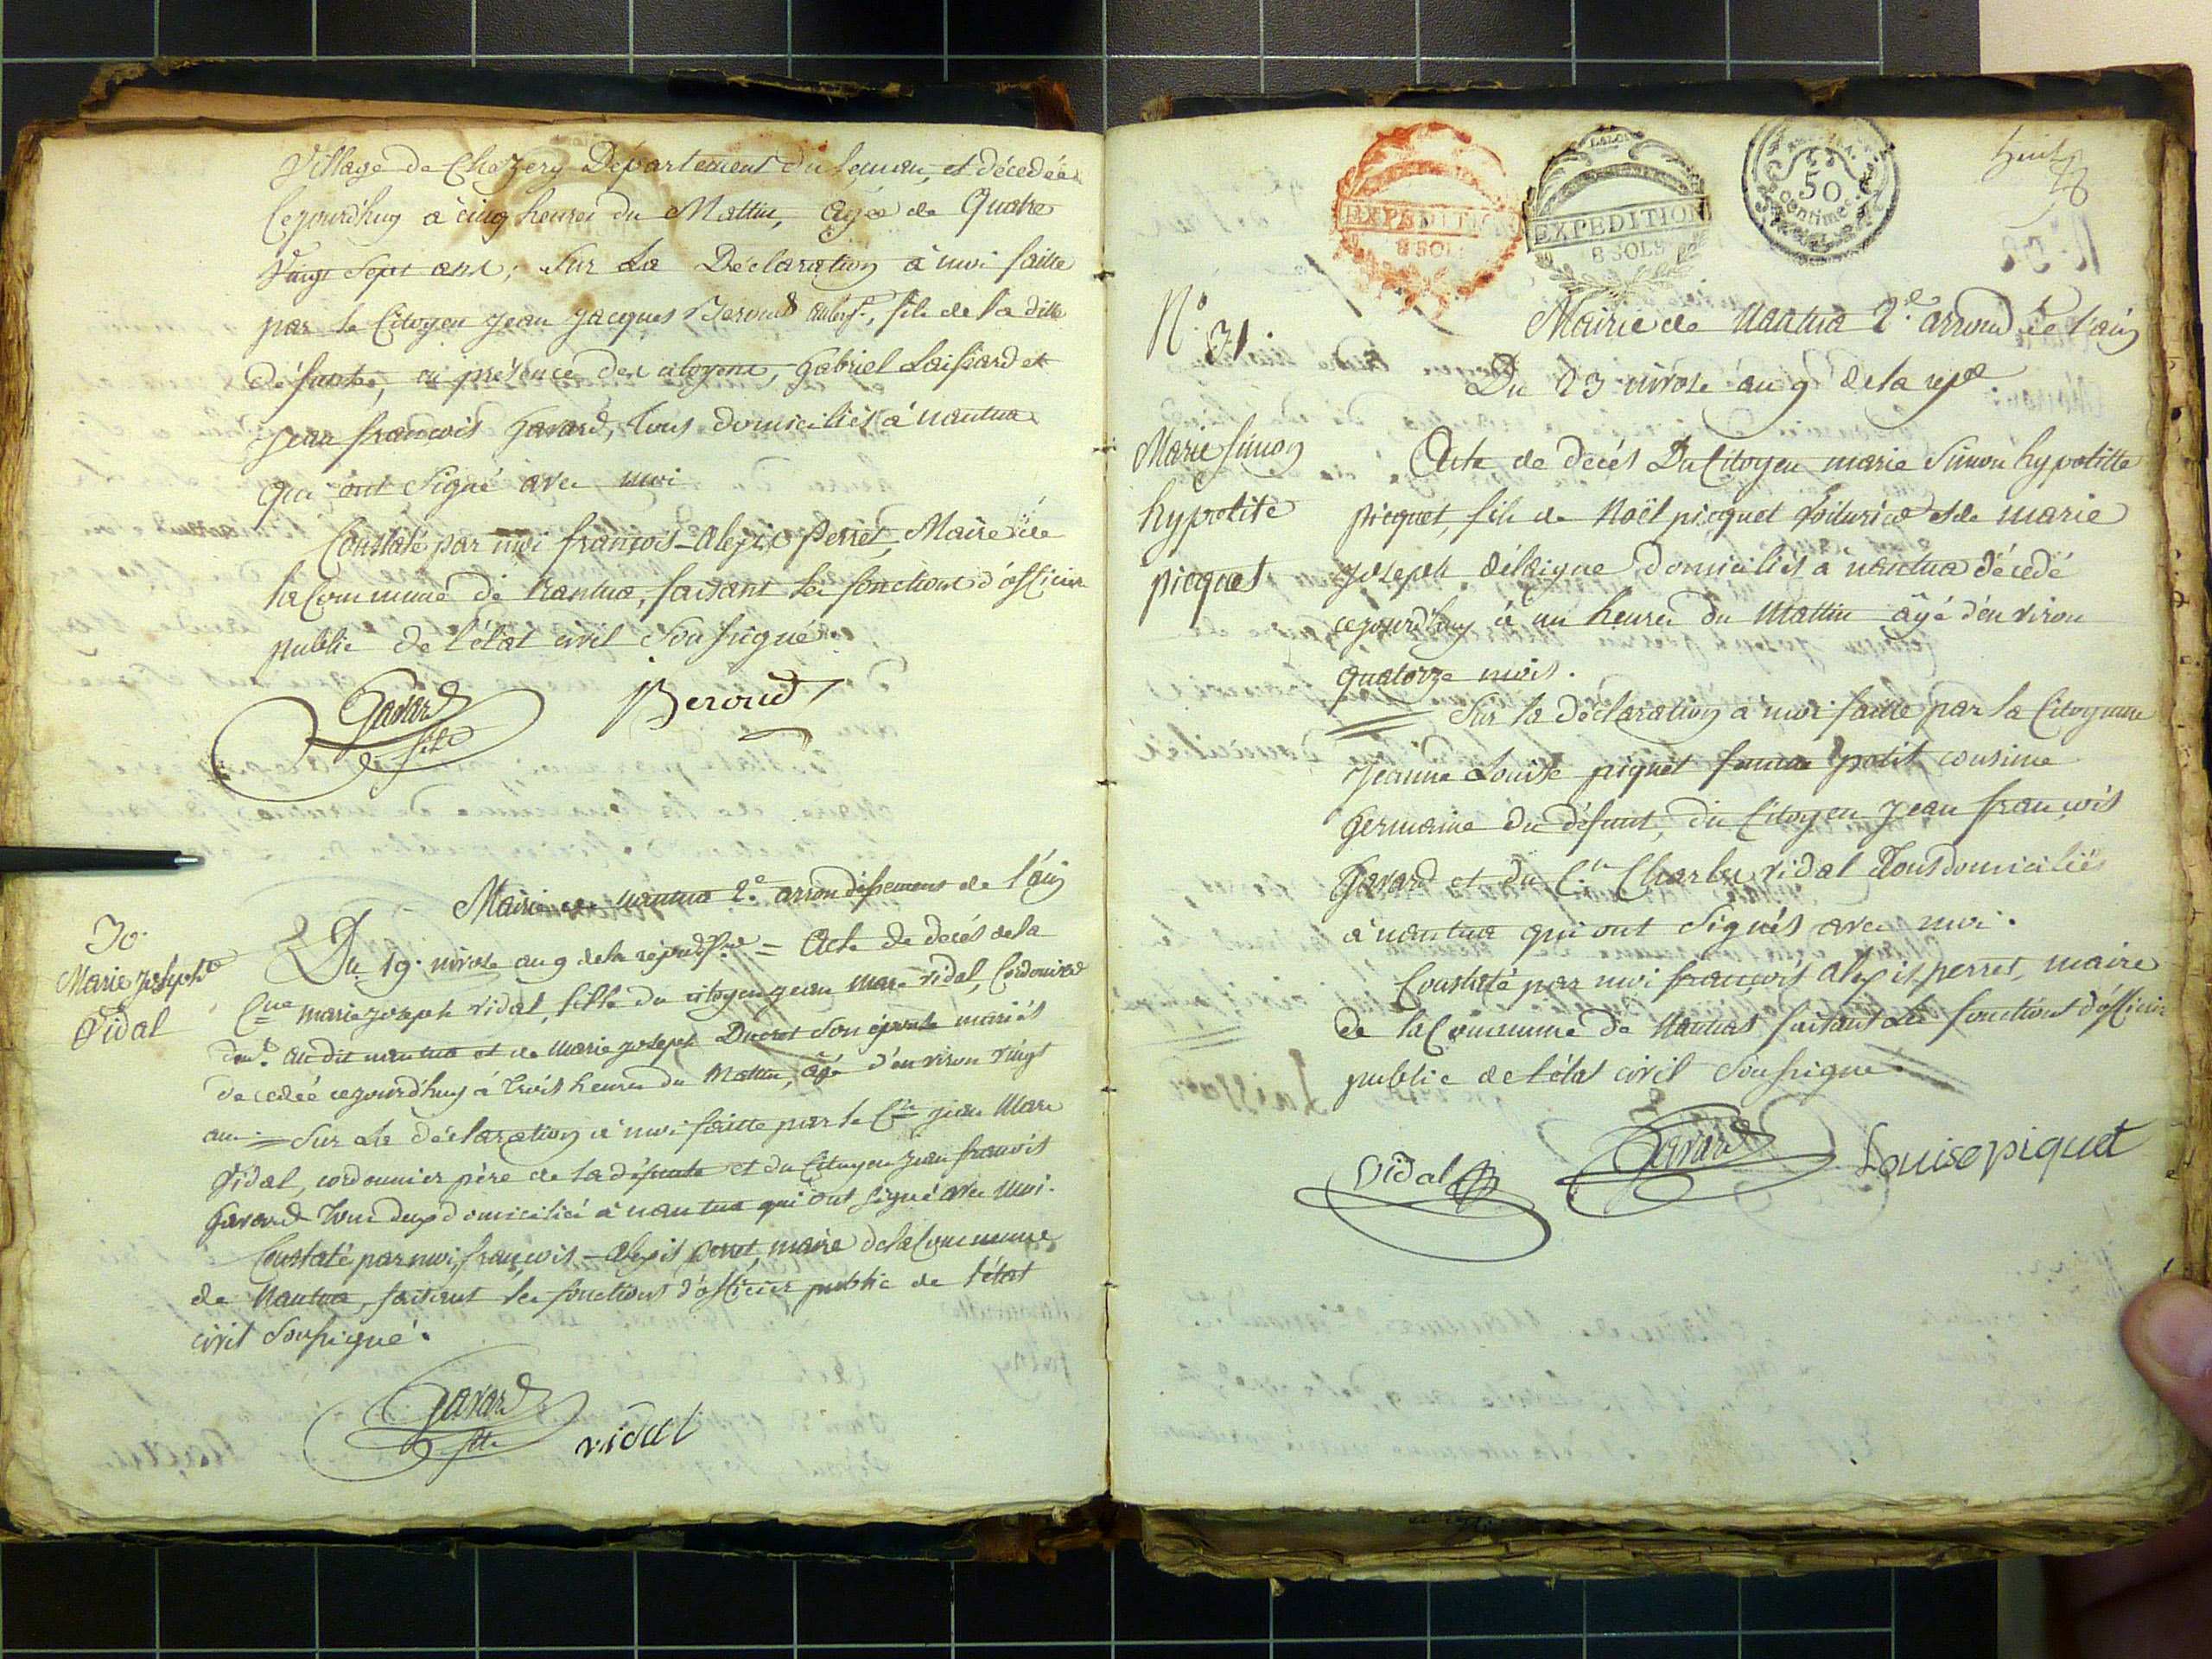 Village de Chezery Département du Leman, et décedée
Cejourd'huy à cinq heures du Mattin, agée de Quatre
Vingt Sept ans; Sur La Déclaration à moi faitte
par le Citoyen jean jacques Beroud auberge., fils de la ditte
défunte, en présence des citoyens, gabriel Laissard et
jean francois gavard, tous domiciliés à nantua
qui ont Signé avec moi
Constaté par moi françois-alexis Perret, Maire de
la Commune de Nantua, faisant les fonctions d'officier
public de l'état civil Soussigné.
Gavard
fils
Beroud
Mairie de nantua 2e. arrondissement de l'ain
30.
Marie joseph
Vidal
Du 19. nivose an 9 de la republque = Acte de decés de la
Cne marie joseph vidal, fille du citoyen jean Marc vidal, Cordonier
dem.t audit nantua et de marie joseph Ducret Son épouse mariés
decedée cejourd'huy à trois heures du Mattin, agé d'environ vingt
ans = Sur La déclaration à moi faitte par le Cen jean Marc
Vidal, cordonnier père de la défunte et du Citoyen jean francois
Gavard tous deux domicilié à nantua qui ont signé avec moi.
Constaté par moi, françois-alexis perret, maire de la Commune
de Nantua, faisant les fonctions d'officier public de l'état
civil Soussigné.
Gavard
fils
vidal
LA LOI
EXPEDITION
8 SOLS
EXPEDITION
8 SOLS
50
Centimes
huit
N.o 31.
Mairie de Nantua 2.e arrond de l'ain
Du 23 nivose an 9 de la repe.
Marie Simon
hypolite
picquet
Acte de decés Du Citoyen marie Simon hypolitte
picquet, fils de Noël picquet Voiturier et de marie
joseph délaigue domiciliés à nantua décedé
cejourd'huy à un heures du Mattin âgé d'environ
quatorze mois.
Sur la déclaration a moi faitte par la Citoyenne
jeanne Louise piquet femme petit cousine
germaine du défunt, du Citoyen jean francois
Gavard et du Cen Charles vidal Tous domiciliés
à nantua qui ont Signés avec moi.
Constaté par moi françois alexis perret, maire
de la Commune de Nantua faisant Les fonctions d'officier
public de l'état civil Soussigné.
Vidal
Gavard
Louise piquet